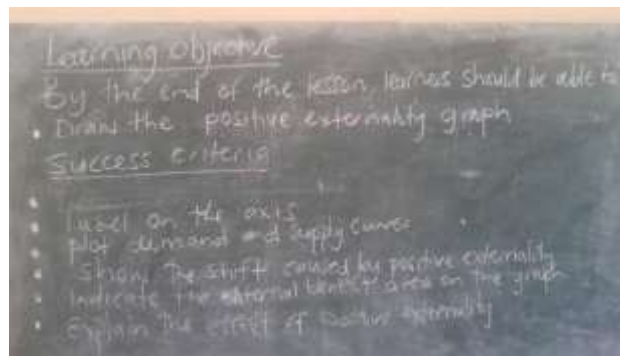 Learning objective
By the end of the lesson, learners should be able to
• Draw the positive externality graph
Success criteria
• Label on the axis
• plot demand and supply curves
• Show the shift caused by positive externality
• Indicate the external benefit area on the graph
• Explain the effect of positive externality